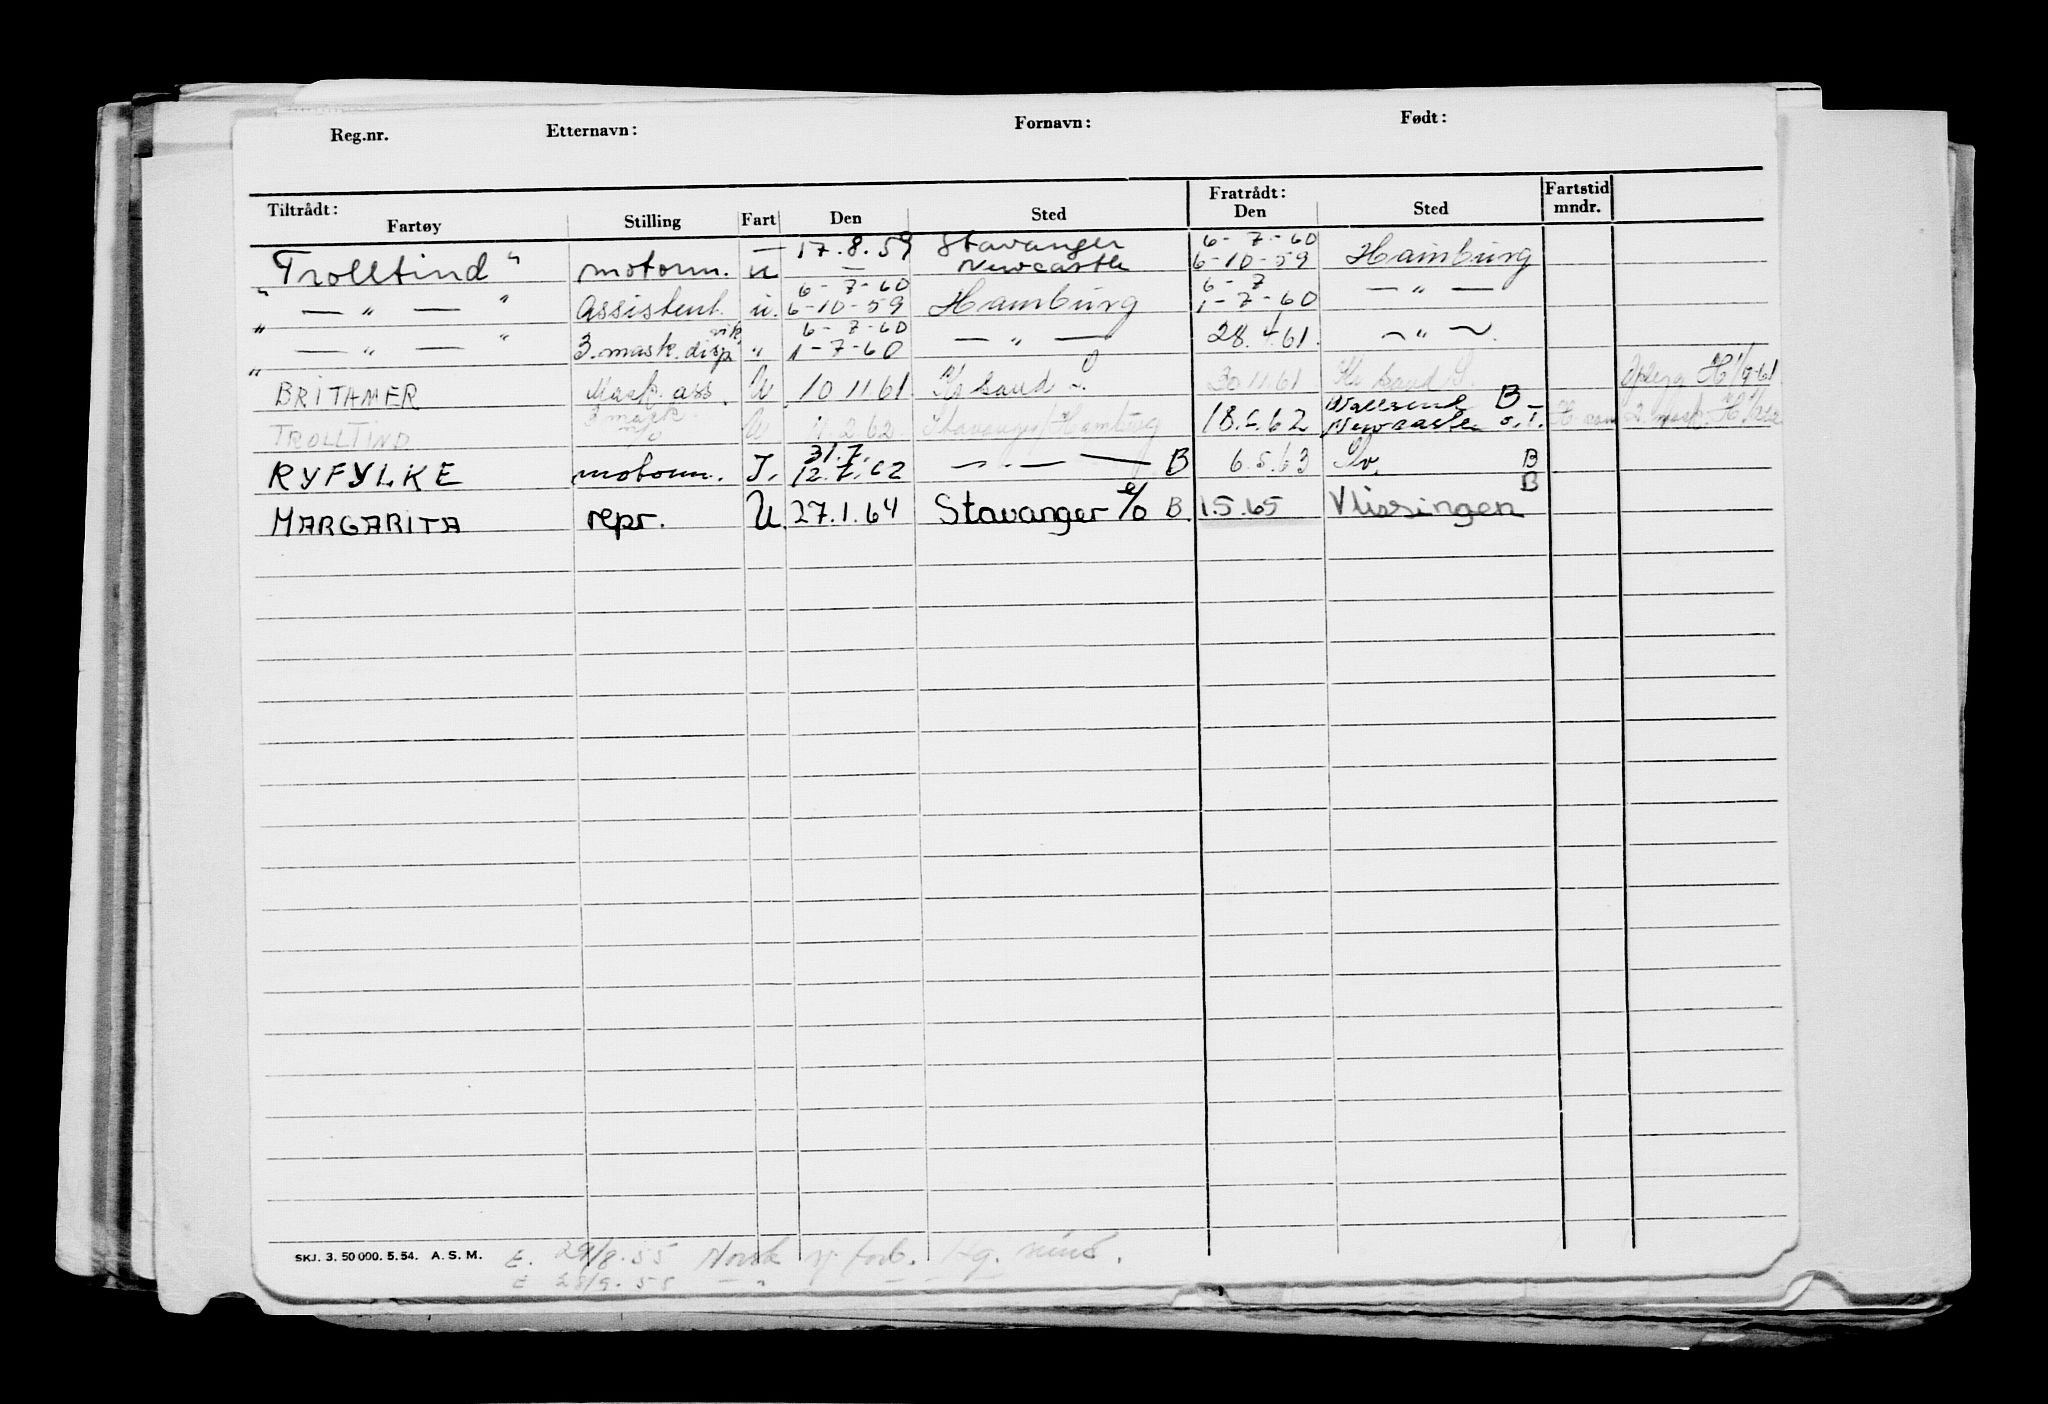 Reg.nr. Etternavn: Fornavn: Født:
Tiltrådt: Fratrådt: Fartstid
Fartøy Stilling Fart Den Sted Den Sted mndr.
17.8.59 Stavanger 6-7-60
"Trolltind" motorm. u — Newcastle 6-10-59 Hamburg
6-7-60 6-7
" — " — " assistent. u. 6-10-59 Hamburg 1-7-60 — " —
vik 6-7-60
" — " — " 3. mask. disp " 1-7-60 — " — 28.4.61. — " —
BRITAMER Mask. ass. U 10 11 61 Kr sand S. 30 11 61 Kr sand S. H 1/9-61
3 mask Wallsend B
TROLLTIND m/o U 2 62. Stavanger/Hamburg 18.6.62 Newcastle s.T.
31.7.
RYFYLKE motorm. I. 12.7.62 — . — B 6.5.63 Sv. B
B
MARGARITA repr. U 27.1.64 Stavanger e/o B 1.5.65 Vlissingen
SKJ. 3. 50 000. 5. 54. A. S. M.
E. 29/8.55 Norsk sj. forb. Hg. sund.
E 28/9.55 — " — —